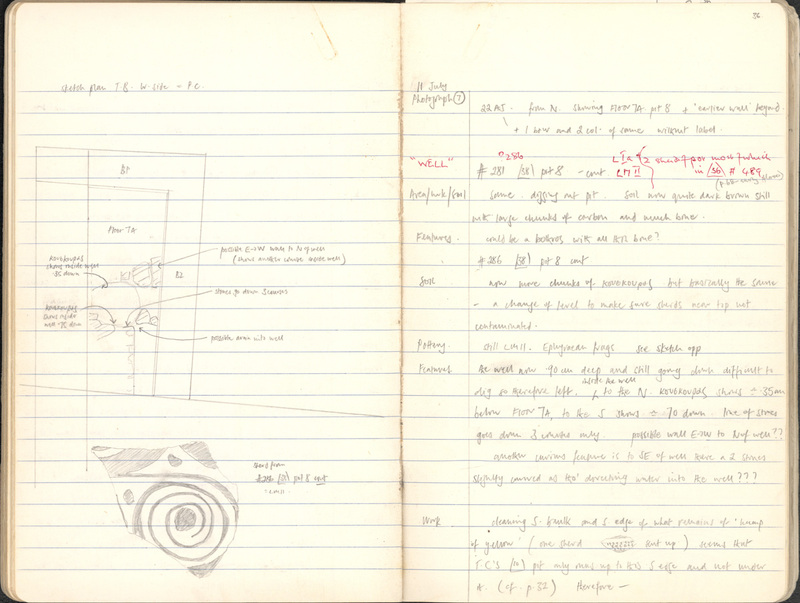 sketch plan T.B. W. site - P.C.
B1
Floor 7A
B2
possible E-W wall to N of well
(shows another course inside well)
KOUKOUPAS
shows inside well
·35 down
stones go down 3 courses
KOUKOUPAS
shows inside
well ·75 down
possible drain into well
sherd from
(38) pit 8 cont
LM II
36
11 July
Photograph 7
22 A5. from N. showing FLOOR 7A pit 8 + "earlier wall" beyond.
+ 1 b+w and 2 col. of same without label.
"WELL"
286
# 281 (38) pit 8 - cont.
L I a
LM II
(2 sherds por mon? which
in (36) # 489
Area/unit/soil
same. digging out pit. Soil now quite dark brown still
with large chunks of carbon and much bone.
Features.
could be a bothros with all this bone?
# 286 (38) pit 8 cont
Soil
now more chunks of KOUKOUPAS but basically the same
- a change of level to make sure sherds near top not
contaminated.
Pottery.
still LMII. Ephyrean frags see sketch opp
Features
the well now 90cm deep and still going down difficult to
dig so therefore left. inside the well to the N. KOUKOUPAS shows ÷ ·35m
below FLOOR 7A, to the S shows ÷ ·70 down. line of stones
goes down 3 courses only. possible wall E-W to N of well??
another curious feature is to SE of well there are 2 stones
slightly curved as tho' directing water into the well???
Work
cleaning S. baulk and S edge of what remains of 'hump
of yellow' (one sherd kept up) seems that
T.C's pit only runs up to this S edge and not under
it. (cf. p. 32) therefore —